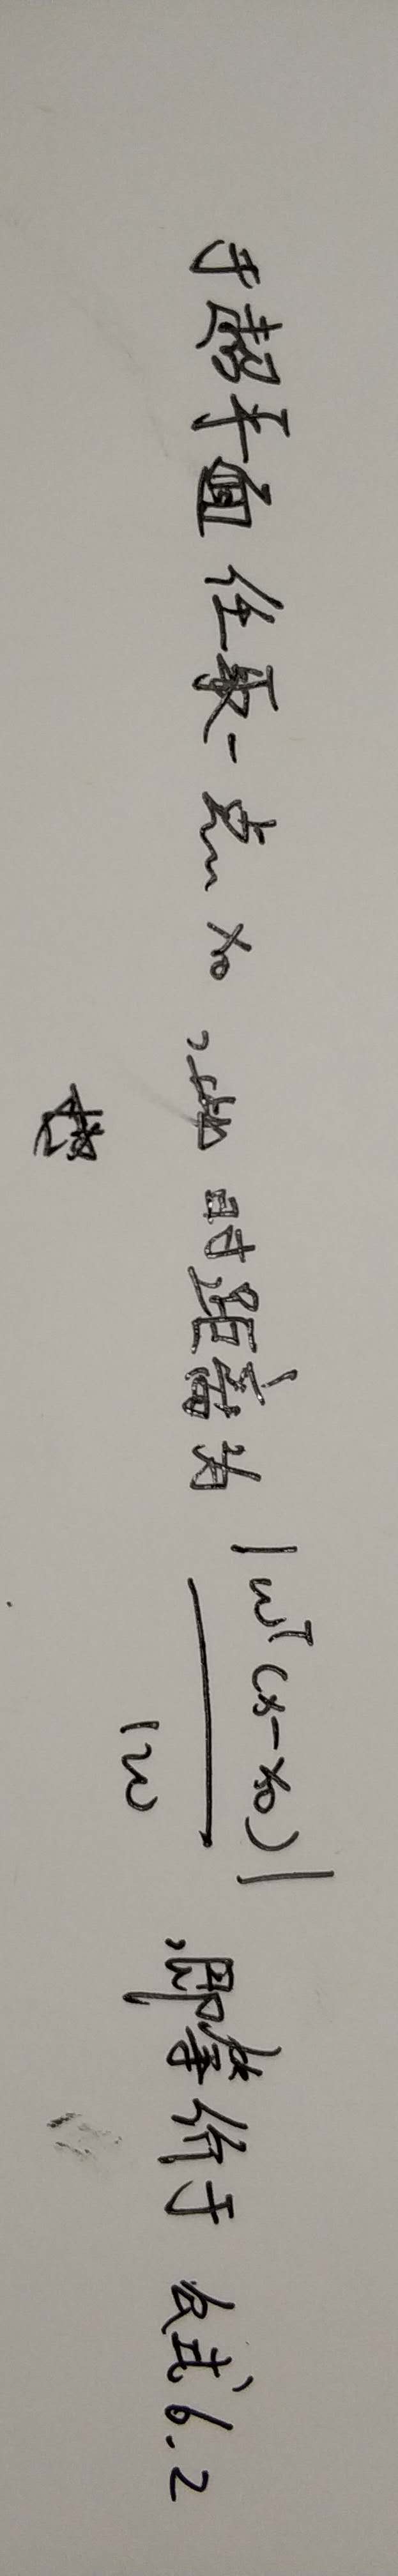 于超平面任取一点 x₀ ,此时距离为 |wᵀ(x-x₀)| / |w ,即等价于 公式 6.2